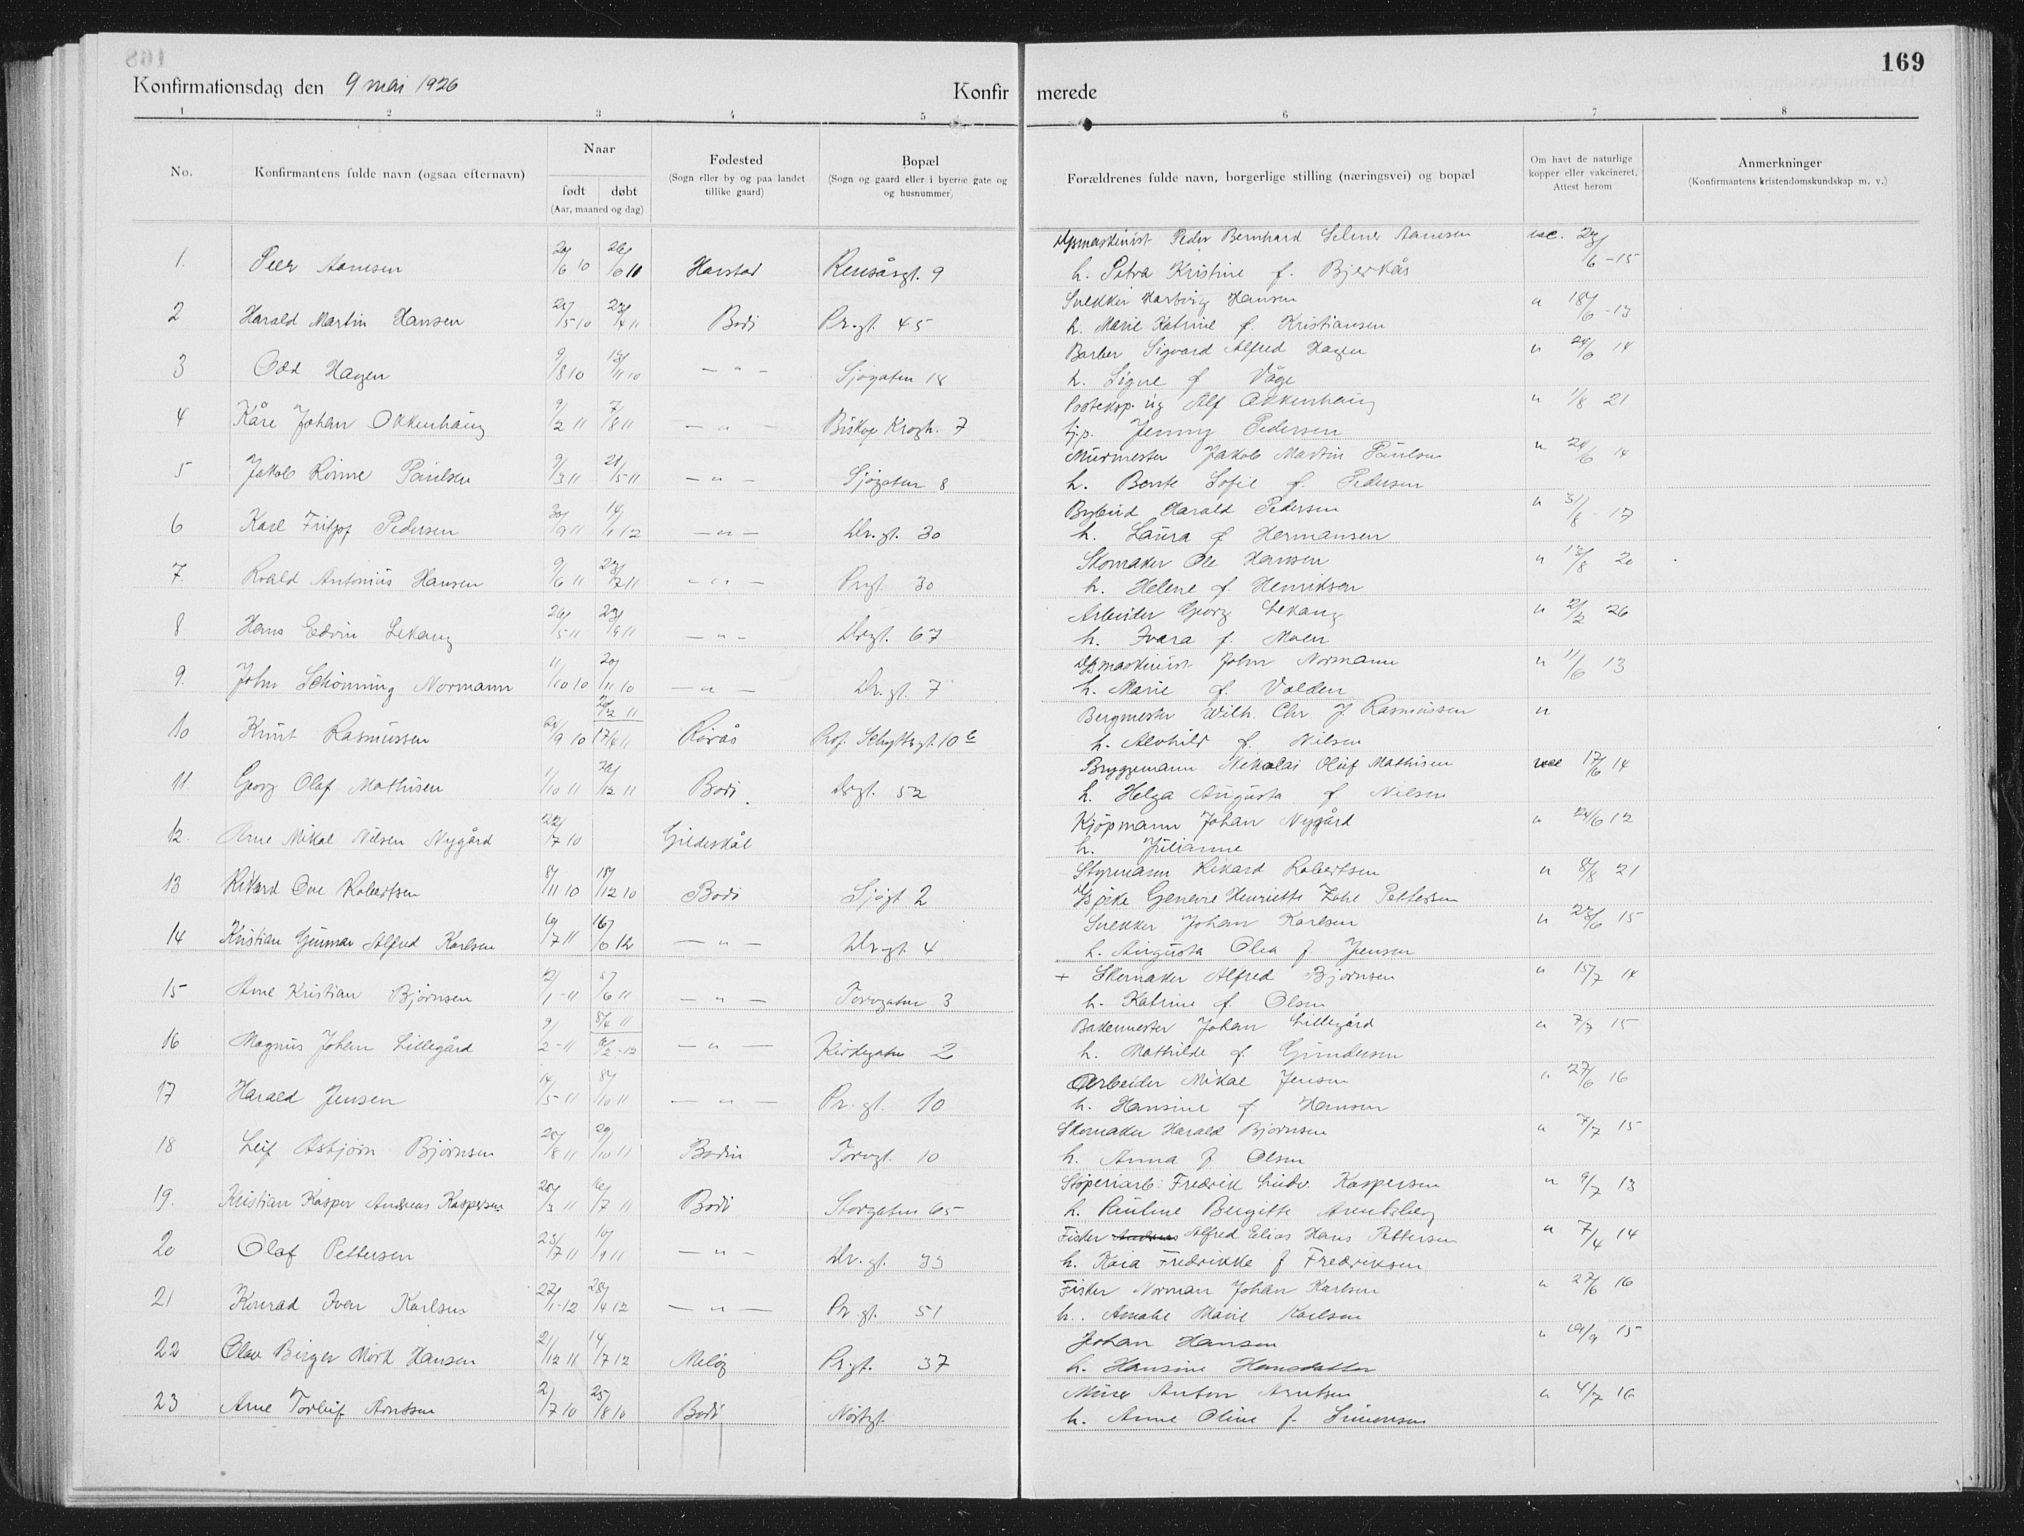 169
Konfirmationsdag den 9 mai 1926 Konfirmerede
1 2 3 4 5 6 7 8
No. Konfirmantens fulde navn (ogsaa efternavn) Naar født døbt (Aar, maaned og dag) Fødested (Sogn eller by og paa landet tillike gaard) Bopæl (Sogn og gaard eller i byerne gate og og husnummer) Forældrenes fulde navn, borgerlige stilling (næringsvei) og bopæl Om havt de naturlige kopper eller vakcineret. Attest herom Anmerkninger (Konfirmantens kristendomskundskap m. v.)
Peder Bernhard Selmer Aanesen vac.
1. Peer Aanesen Harstad Rensåsgt. 9 h. Petra Kristine f. Bjerkås
Snekker Hartvig Hansen " 18/6-13
2 Harald Martin Hansen Bodø Pr.gt. 45 h. Marie Katrine f. Kristiansen
Barber Sigvard Alfred Hagen " 14
3 Odd Hagen 9/8 10 — " — Sjøgaten 18 h. Signe f Våge
Posteksp. ug Alf Okkenhaug " 1/8 21
4 Kåre Johan Okkenhaug 9/2 11 7/8 11 — " — Biskop Krogh. 7 tj.p. Jenny Pedersen
Murmester Jakob Martin Paulsen " 14
5 Jakob Rønne Paulsen 9/3 11 21/5 11 — " — Sjøgaten 8 h. Bente Sofie f. Pedersen
Bybud Harald Pedersen " 3/8-17
6 Karl Fritjof Pedersen 30/9 11 14/1 12 — " — Dr.gt. 30 h. Laura f Hermansen
Skomaker Ole Hansen " 20
7. Roald Antonius Hansen 9/6 11 23/7 11 — " — Pr.gt. 30 h. Helene f. Henriksen
Arbeider Georg Lekang " 2/2 26
8 Hans Edvin Lekang 26/5 11 — " — Dr.gt. 67 h. Ivara f. Moen
Dpmaskinist John Normann " 11/6 13
9. John Schønning Normann 11/10 10 20/11 10 — " — Dr.gt. 7 h. Marie f. Valden
Bergmester Wilh. Chr. J. Rasmussen "
10 Knut Rasmussen 17/6 11 Røros Prof. Schyttesgt. 10 b h. Alvhild f. Nilsen
Bryggemann Nikolai Oluf Mathisen vac 17/6 14
11 Georg Olaf Mathisen 1/10 11 Bodø Dr.gt. 52 h. Helga Augusta f Nilsen
Kjøpmann Johan Nygård " 24/6 12
12. Arne Mikal Nilsen Nygård 22/7 10 Gildeskål h. Julianne
Styrmann Rikard Robertsen " 8/8 21
13 Rikard Ove Robertsen 8/11 10 18/12 10 Bodø Sjøgt 2 Henriette Pettersen
Snekker Johan Karlsen " 15
14 Kristian Gunnar Alfred Karlsen — " — Dr.gt. 4 h. Augusta Olea f Jensen
+ Skomaker Alfred Bjørnsen " 15/7 14
15 Arne Kristian Bjørnsen 2/1-11 5/6 11 — " — Torvgaten 3 h. Katrine f. Olsen
Bakermester Johan Lillegård " 7/7 15
16 Magnus Johan Lillegård 9/2-11 — " — Kirkegaten 2 h. Mathilde f Gundersen
Arbeider Mikal Jensen " 27/6 16
17 Harald Jensen 14/5-11 8/10 11 — " — Pr.gt. 10 h. Hansine f Hansen
Skomaker Harald Bjørnsen " 7/7 15
18 Leif Asbjørn Bjørnsen 10 11 Bodin Torvgt. 10 h. Anna f Olsen
Støperiarb. Fredrik Kaspersen " 9/7 13
19. Kristian Kasper Andreas Kaspersen 28/3 11 16/7 11 Bodø Storgaten 65 h. Pauline Bergitte Arentsberg
Fisker Alfred Elias Hans Pettersen " 7/4 14
20 Olaf Pettersen 23/7 11 10/9 11 — " — Dr.gt. 33 h. Kaia Fredrikke f Fredriksen
Fisker Norman Johan Karlsen " 27/6 16
21 Konrad Iver Karlsen 22/1-12 28/4 12 — " — Pr.gt. 51 h. Amalie Marie Karlsen
Johan Hansen " 15
22 Olav Birger Mørk Hansen 21/12 11 14/7 12 Meløy Pr.gt. 37 h. Hansine Hansdatter
Murer Anton Arntsen " 4/7 16
23 Arne Torleif Arntsen 2/7 10 25/8 10 Bodø Nørtgt. h. Anne Oline f. Simonsen